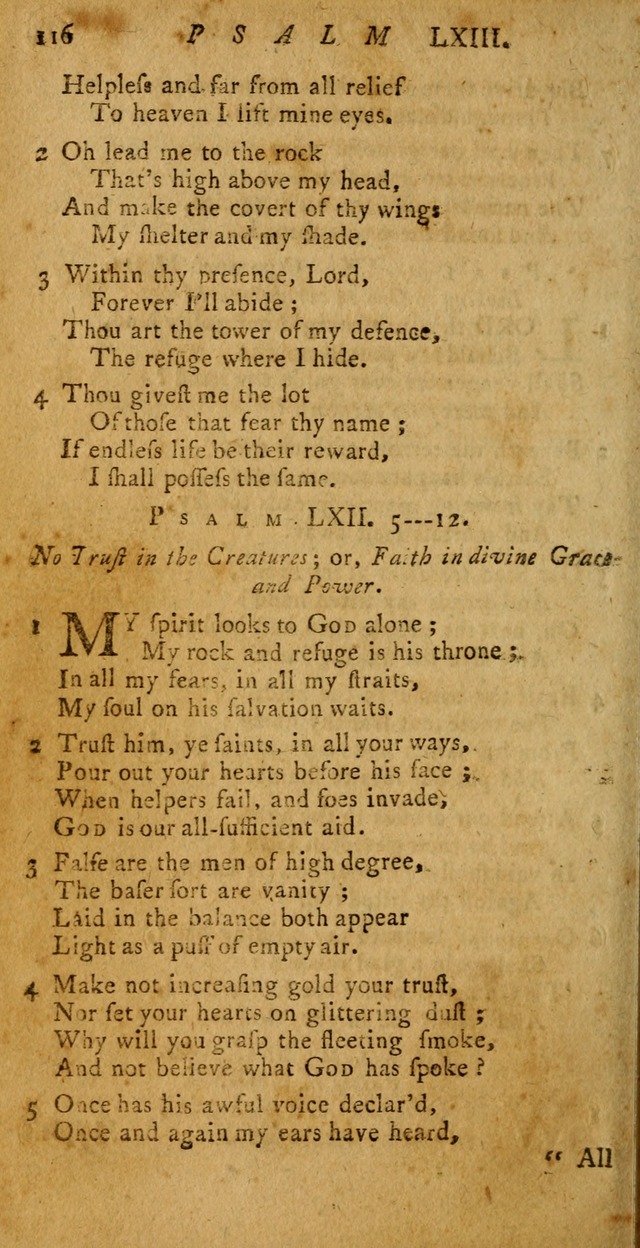 116 P S A L M LXIII.
Helpleſs and far from all relief
To heaven I lift mine eyes.
2 Oh lead me to the rock
That's high above my head,
And make the covert of thy wings
My ſhelter and my ſhade.
3 Within thy preſence, Lord,
Forever I'll abide ;
Thou art the tower of my defence,
The refuge where I hide.
4 Thou giveſt me the lot
Of thoſe that fear thy name ;
If endleſs life be their reward,
I ſhall poſſeſs the ſame.
P S A L M . LXII. 5---12.
No Truſt in the Creatures ; or, Faith in divine Grace
and Power.
1 MY ſpirit looks to GOD alone ;
My rock and refuge is his throne ;
In all my fears, in all my ſtraits,
My ſoul on his ſalvation waits.
2 Truſt him, ye ſaints, in all your ways,
Pour out your hearts before his face ;
When helpers fail, and foes invade,
GOD is our all-ſufficient aid.
3 Falſe are the men of high degree,
The baſer ſort are vanity ;
Laid in the balance both appear
Light as a puff of empty air.
4 Make not increaſing gold your truſt,
Nor ſet your hearts on glittering duſt ;
Why will you graſp the fleeting ſmoke,
And not believe what GOD has ſpoke ?
5 Once has his awful voice declar'd,
Once and again my ears have heard,
“ All